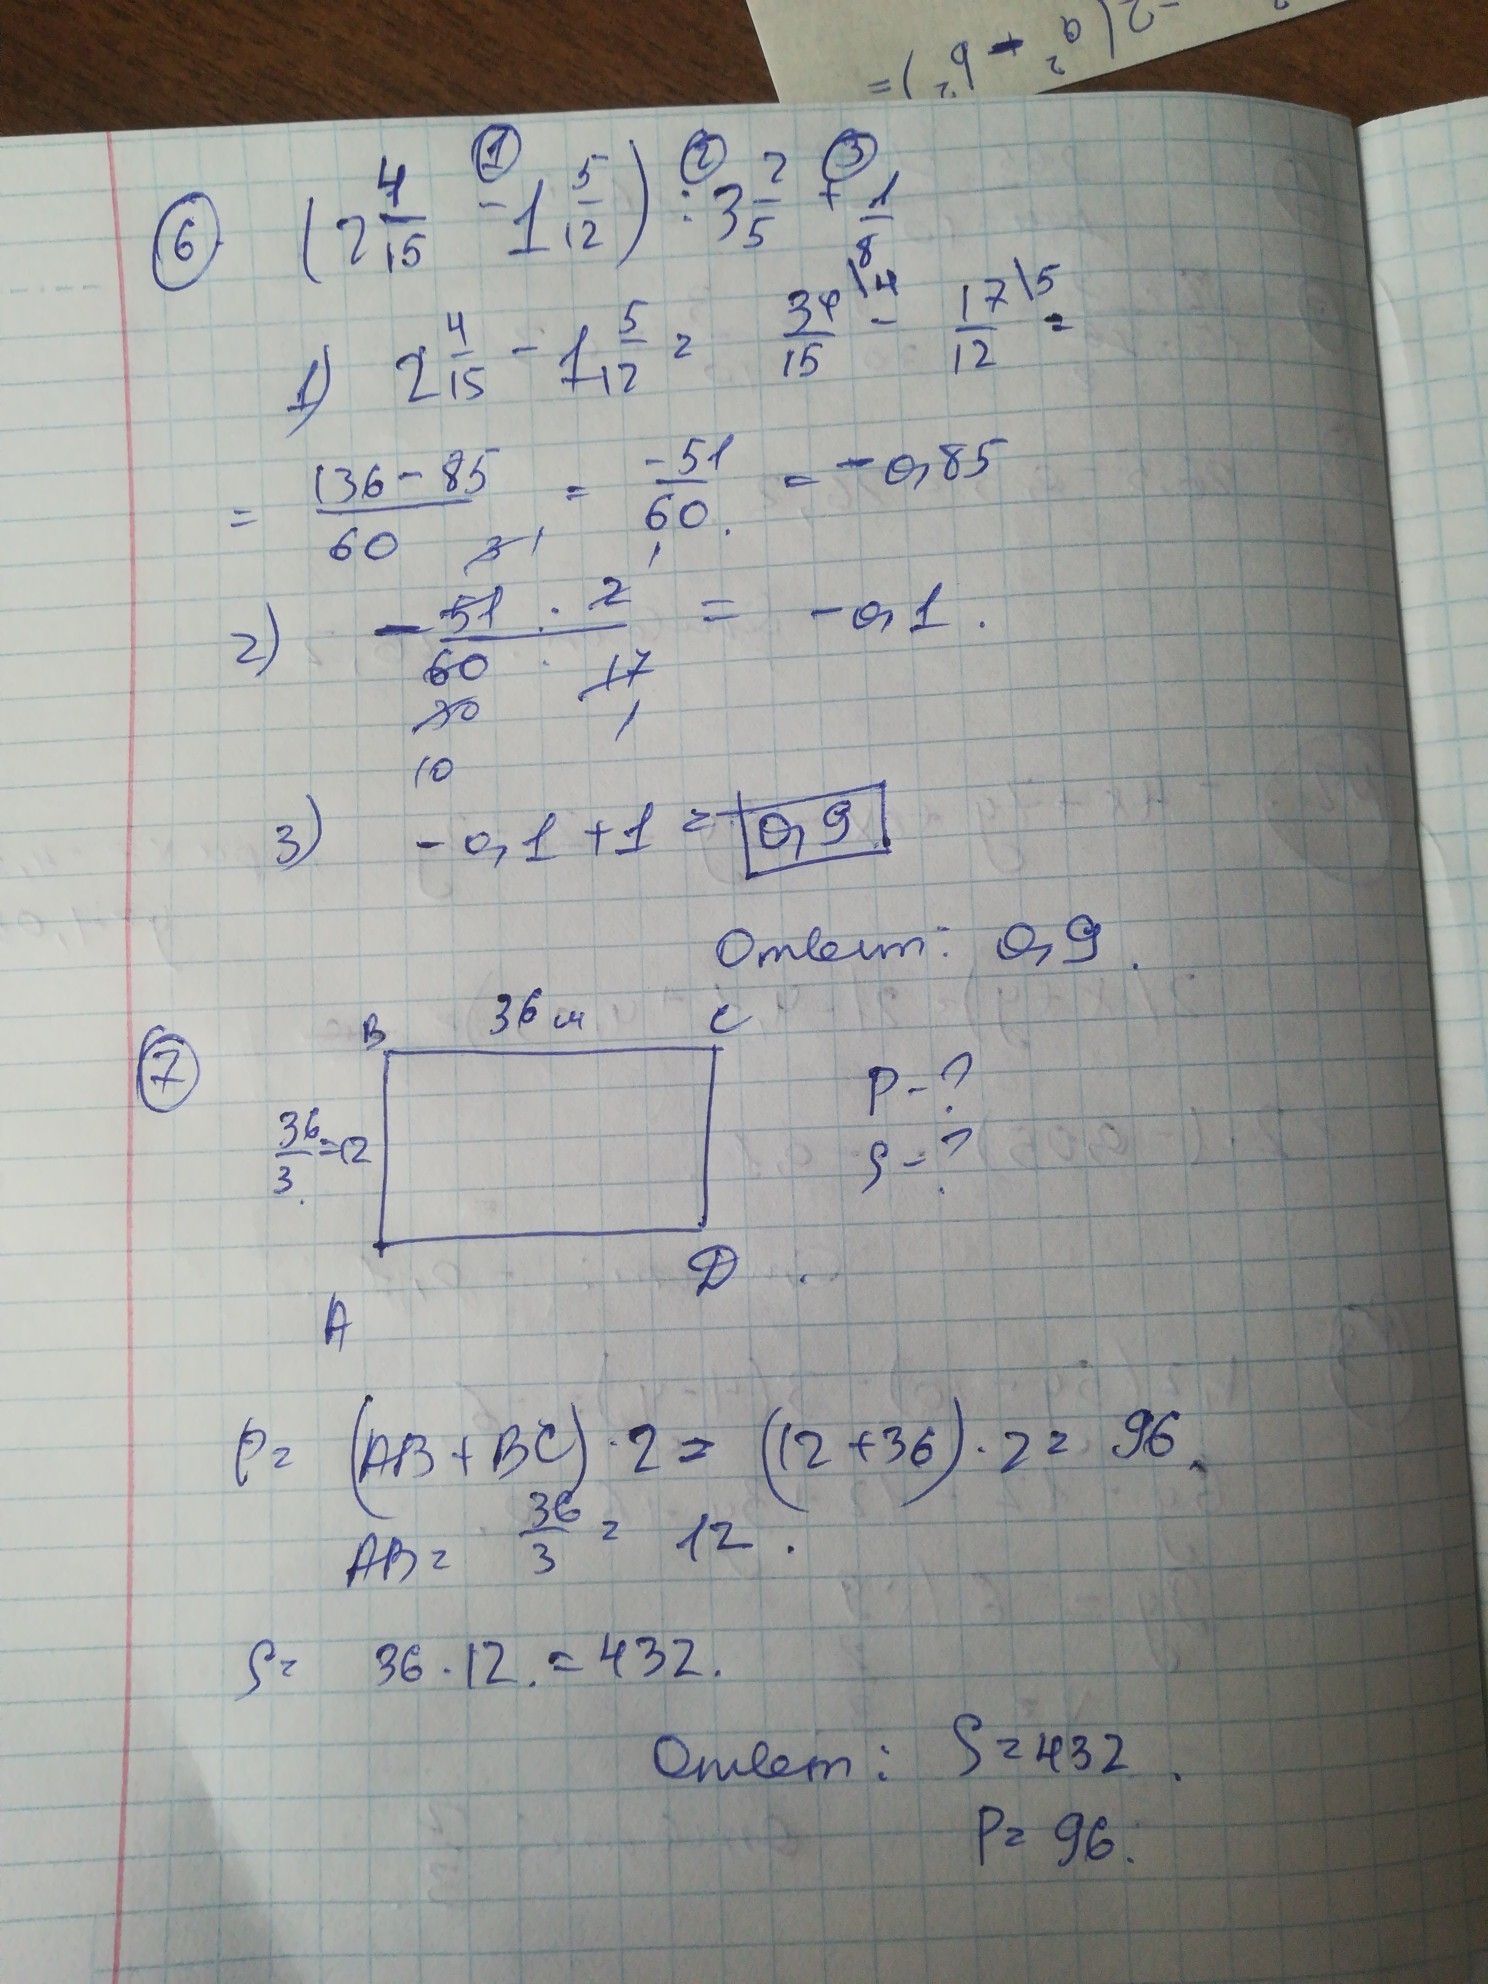 -2(a² + b²)=
① ② ③
⑥ (2 4/15 - 1 5/12) : 3 2/5 + 1/8
1) 2 4/15 - 1 5/12 = 34/15 \4 - 17/12 \5 =
= 136-85/60 = -51/60. = -0,85
2) - 51 · 2 / 60 · 17 = -0,1.
3 1 1
30 1
10
3) -0,1 + 1 = 0,9
Ответ: 0,9.
⑦ B 36 м C
P-?
36/3 = 12
S-?
D
A
P= (AB+BC)·2= (12+36)·2= 96.
AB= 36/3 = 12.
S= 36·12.=432.
Ответ: S=432.
P= 96.